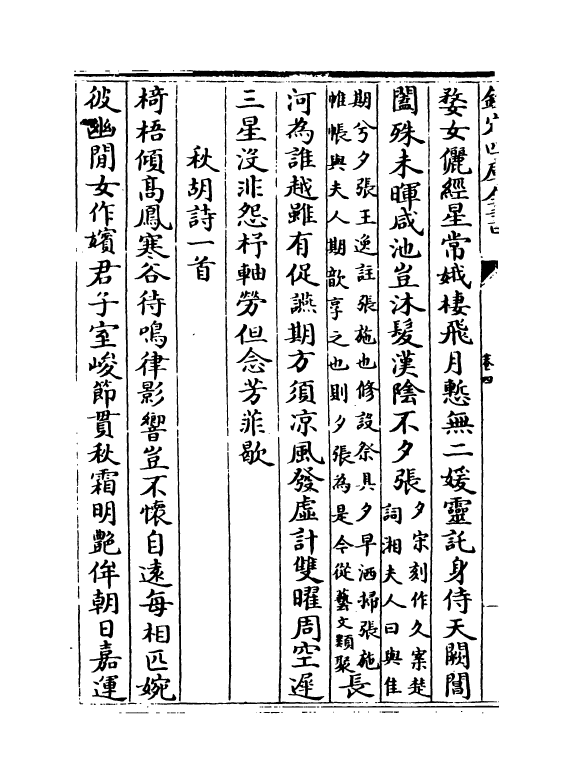 欽定四庫全書
卷四
婺女儷經星常娥棲飛月慙無二媛靈託身侍天闕閶
闔殊未暉咸池豈沐髮漢陰不夕張
夕宋刻作久案楚
詞湘夫人曰與佳
期兮夕張王逸註張施也修設祭具夕早洒掃張施
帷帳與夫人期歆享之也則夕張為是今從藝文類聚
長
河為誰越雖有促讌期方須涼風發虛計雙曜周空遲
三星沒非怨杼軸勞但念芳菲歇
秋胡詩一首
椅梧傾高鳳寒谷待鳴律影響豈不懷自遠每相匹婉
彼幽閒女作嬪君子室峻節貫秋霜明艷侔朝日嘉運